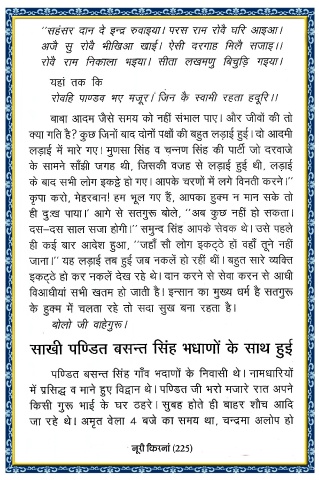 "सहंसर दान दे इन्द्र रुवाइया। परस राम रोवै घरि आइआ।
अजै सु रोवै भीखिआ खाई। ऐसी दरगाह मिलै सजाइ।।
रोवै राम निकाला भइया। सीता लखमणु बिछुड़ि गइया।
यहां तक कि
रोवहि पाण्डव भए मजूर। जिन कै स्वामी रहता हदूरि।।
बाबा आदम जैसे समय को नहीं संभाल पाए। और जीवों की तो
क्या गति है? कुछ जिनों बाद दोनों पक्षों की बहुत लड़ाई हुई। दो आदमी
लड़ाई में मारे गए। मुणसा सिंह व चन्नण सिंह की पार्टी जो दरवाजे
के सामने साँझी जगह थी, जिसकी वजह से लड़ाई हुई थी, लड़ाई
के बाद सभी लोग इकट्ठे हो गए। आपके चरणों में लगे विनती करने।"
कृपा करो, मेहरबानां! हम भूल गए हैं, आपका हुक्म न मान सके तो
ही दुःख पाया।' आगे से सतगुरू बोले, "अब कुछ नहीं हो सकता।
दस–दस साल सजा होगी।'' समुन्द सिंह आपके सेवक थे। उसे पहले
ही कई बार आदेश हुआ, "जहाँ सौ लोग इकट्ठे हों वहाँ तूने नहीं
जाना।'' यह लड़ाई तब हुई जब नकलें हो रहीं थीं। बहुत सारे व्यक्ति
इकट्ठे हो कर नकलें देख रहे थे। दान करने से सेवा करन से आधी
विआधीयां सभी खतम हो जाती है। इन्सान का मुख्य धर्म है सतगुरू
के हुक्म में चलता रहे तो सदा सुख बना रहता है।
बोलो जी वाहेगुरू।
साखी पण्डित बसन्त सिंह भधाणों के साथ हुई
पण्डित बसन्त सिंह गाँव भदाणों के निवासी थे। नामधारियों
में प्रसिद्ध व माने हुए विद्वान थे। पण्डित जी भरो मजारे रात अपने
किसी गुरू भाई के घर ठहरे। सुबह होते ही बाहर शौच आदि
जा रहे थे। अमृत वेला 4 बजे का समय था, चन्द्रमा अलोप हो
नूरी किरनां (225)